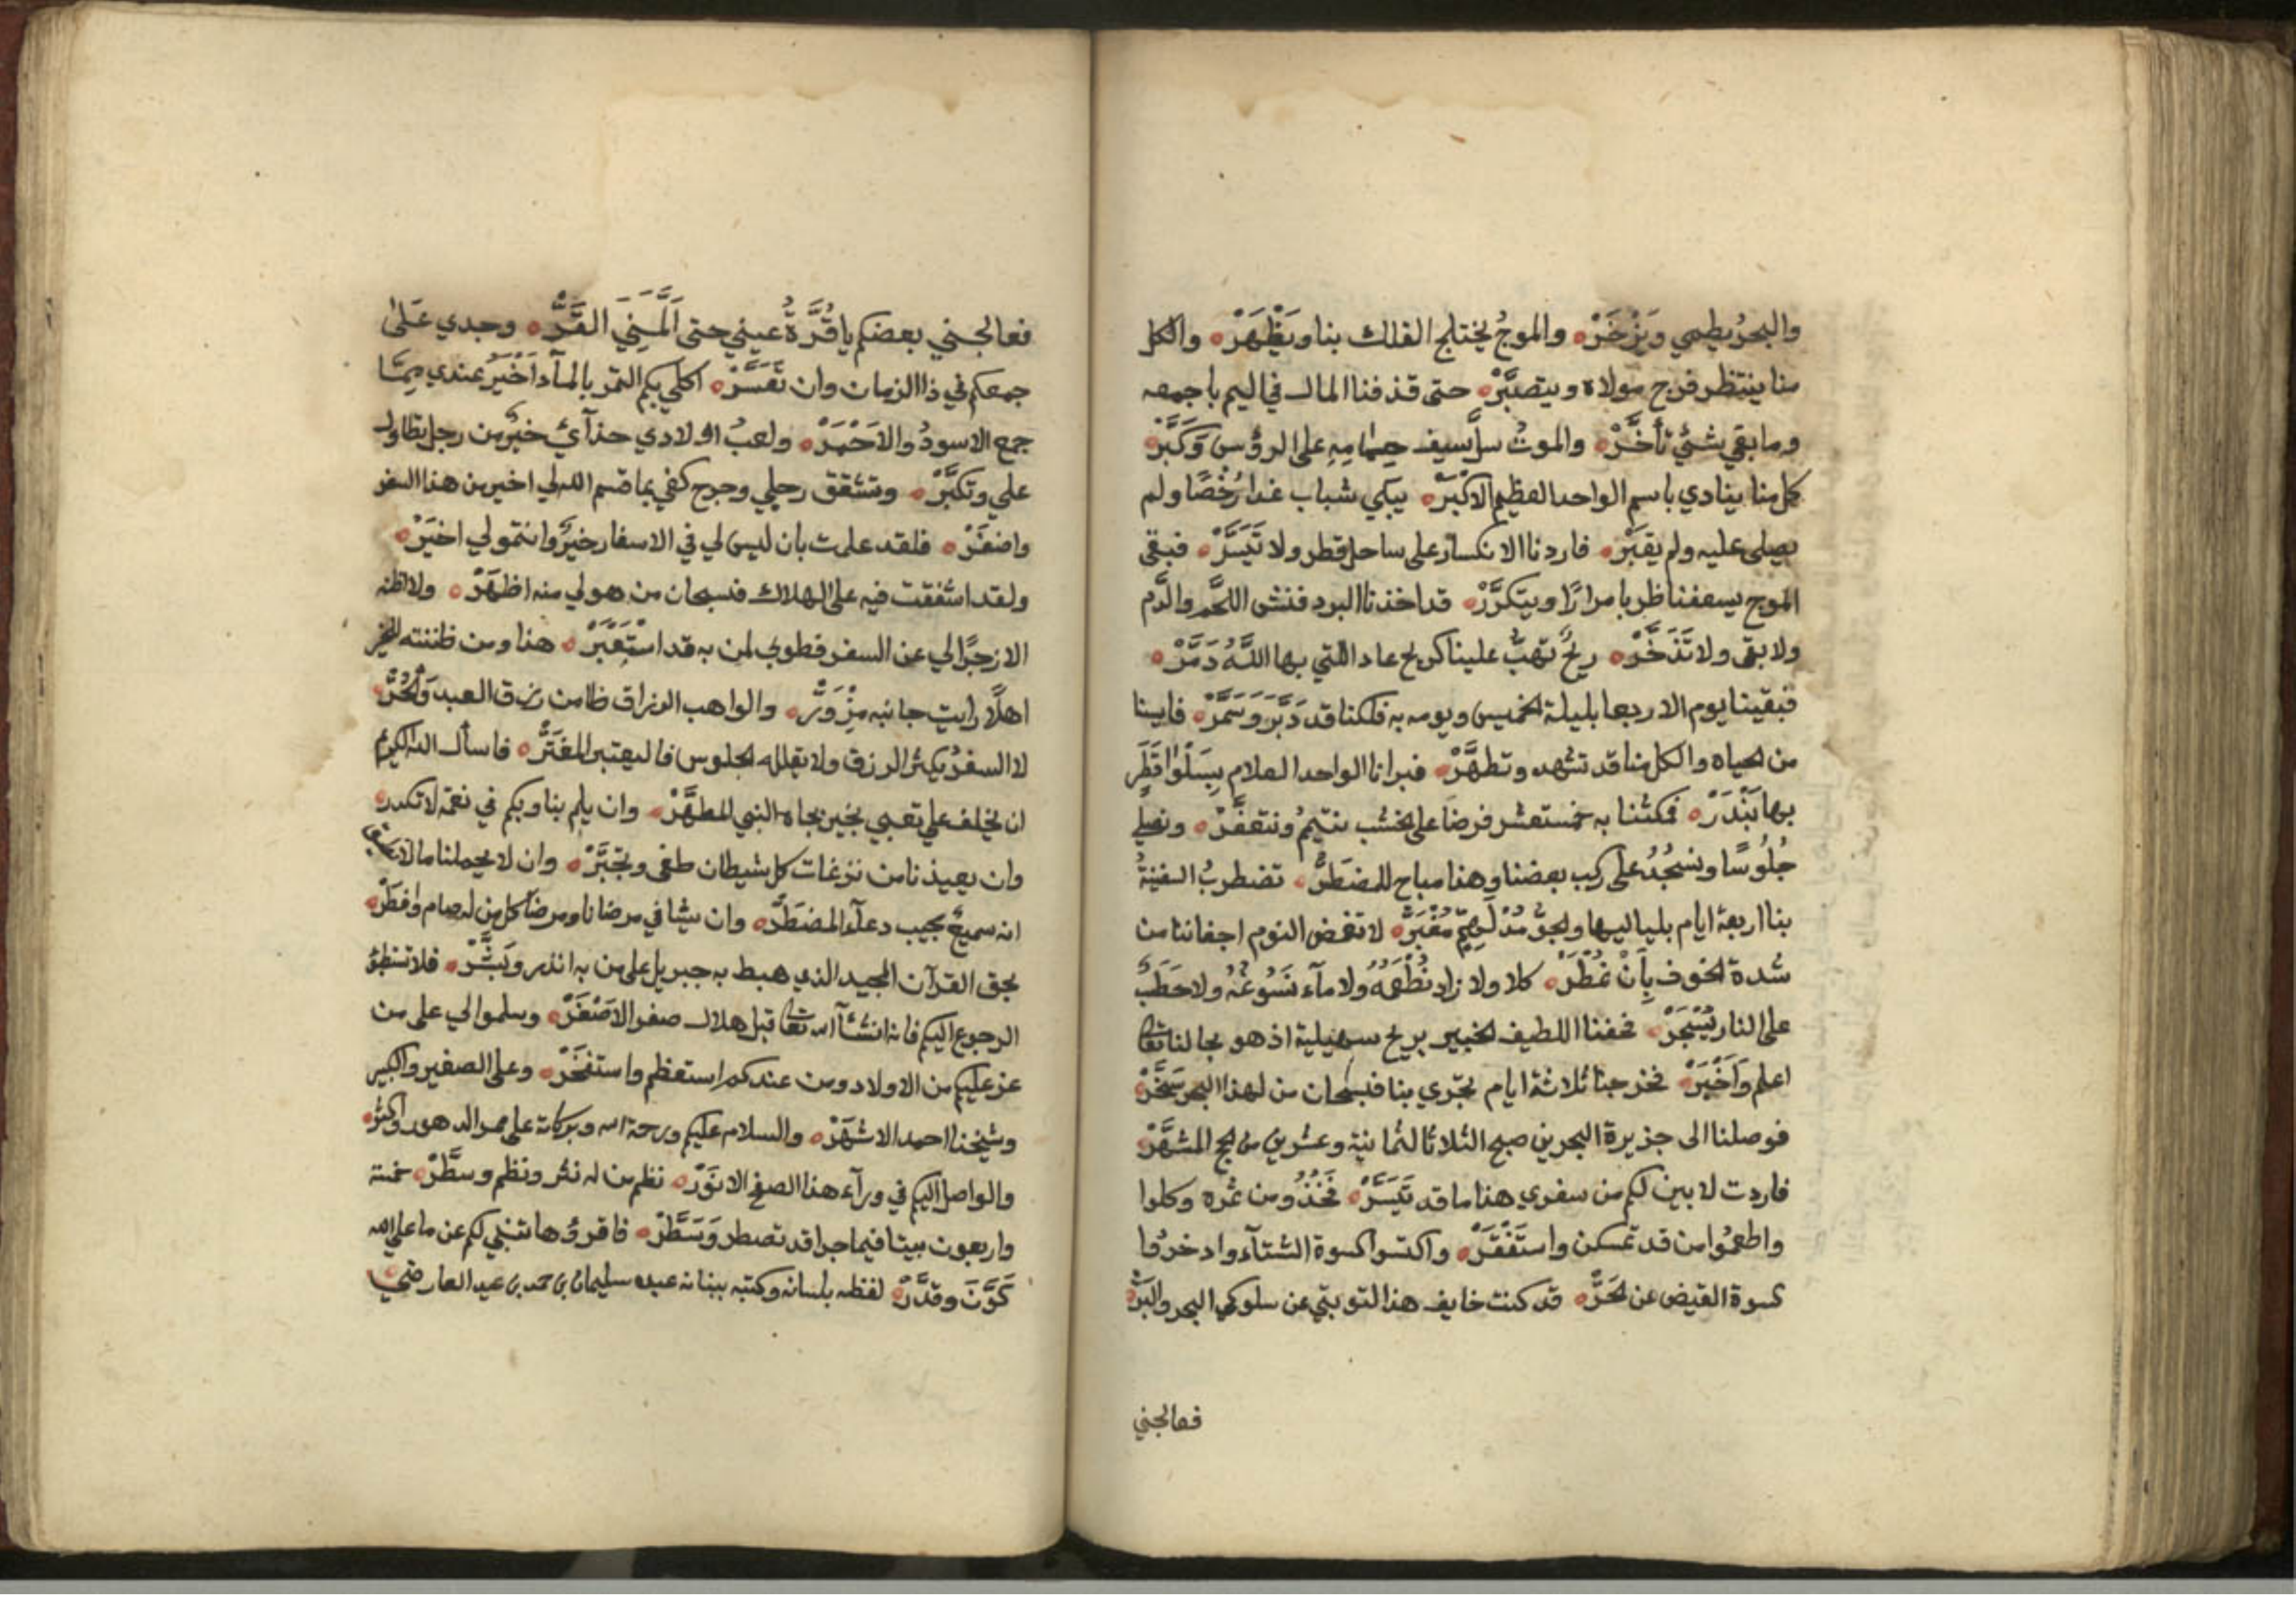 والبحرُ يطمي وَيَزْخَرْ ه والموجُ يختلج الفلك بنا ويَظْهَرْ ه والكل
منا ينتظر فرج مولاه ويتصبَّرْ ه حتى قذفنا المال في اليم باجمعه
وما بقي شيٌ تأخَّرْ ه والموتُ سلَّ سيف حِمامِهِ على الرؤس وَكَبَّرْ ه
كل منا ينادي باسم الواحد العظيم الاكْبَرْ ه يبكي شباب غدا رُخْصًا ولم
يصلى عليه ولم يقبَرْ ه فاردنا الانكسار على ساحل قطر ولا تَيَسَّرْ ه فبقى
الموج يسعفنا ظربا مرارًا ويتكرَّرْ ه قد اخذنا البرد فنشى اللحم والدَّم
ولا بقى ولا تَذَخَّرْ ه ريحٌ تهبُّ علينا كريح عاد اللتي بها اللَّهُ دَمَّرْ ه
فبقينا يوم الاربعا بليلة الخميس ويومه به فلكنا قد دَبَّرَ وَسَمَّرْ ه فايسنا
من الحياه والكل منا قد تشهد وتطهَّرْ ه فبرانا الواحد العلام بِسَلْوا قَطَرِ
بها بَنْدَرْ ه فمكثنا به خمستعشر فرضًا على الخشب نتيممُ ونتعفَّرْ ه ونصلي
جُلُوسًا ونسْجُدُ على ركب بعضنا وهنا مباح للمضطَرُّ ه تضطربُ السفينةُ
بنا اربعة ايام بلياليها والجوُّ مُدْلَهِمٌّ مُغْبَرَّ ه لا تغمض النوم اجفاننا من
شدة الخوف بِأَنْ نمُطَرْ ه كلا ولا زاد نُطْعَمُهُ ولا مآء نَسُوغُهُ ولا حَطَبٌ
على النار يُسْجَرْ ه فحفنا اللطيف الخبير بريح سهيلية اذ هو بحالنا تعالى
اعلم وَأَخْبَرْ ه فخرجنا ثلاثة ايام تجري بنا فسبحان من لهذا البحر سَخَّرْ ه
فوصلنا الى جزيرة البحرين صبح الثلاثا لثمانية وعشرين من لحج المشهَّرْ ه
فاردت لابين لكم من سفري هنا ما قد تَيَسَّرْ ه فَخُذُو من ثمره وكلوا
واطعِمُوا من قد تمسكن واستَفْقَرْ ه واكتسوا كسوة الشتآء وادخرُوا
كسوة القيض عن الحَرَّ ه قد كنت خايف هذا لتوبتي عن سلوكي البحر والبَرّ ه
فعالجني
فعالجني بعضكم يا قُرَّةُ عيني حتى اَلَمَّنِيَ القَدَّرْ ه وجدي عَلىٰ
جمعكم في ذا الزمان وان تَعَسَّرْ ه اكلي بكم التمر بالمآء اَخْيَرُ عندي مِمَّا
جمع الاسودُ والاَحْمَرْ ه ولعبُ اولادي حذآئ خيرٌ من رجل يطاول
علي وتكبَّرْ ه وتشقق رجلي وجرح كفي بما قسم الله لي اخير من هذا السفر
واضغَرْ ه فلقد علمت بان ليس لي في الاسفار خيرٌ وانتمو لي اخيَرْ ه
ولقد اشفقت فيه على الهلاك فسبحان من هو لي منه اظهَرْ ه ولا اظنه
الا زجرًا لي عن السفر فطوبى لمن به قد استَعْبَرْ ه هنا ومن ظننته للخير
اهلًا رايت جانبه مِزْوَرّ ه والواهب الرزاق ظامن رزق العبد وَالحُرَّ ه
لا السفرُ يكثر الرزق ولا يقلله الجلوس فاليعتبر المغتَرُّ ه فاسأل الله الكريم
ان يخلف علي تعبي بخير بجاه النبي المطهَّرْ ه وان يلم بنا وبكم في نعمة لا تكدر ه
وان يعيذنا من نزغات كل شيطان طغى وتجبَّرْ ه وان لا يحملنا ما لا نطيق
انه سميعٌ مجيب دعآء المضطَرّ ه وان يشافي مرضانا ومرضا كل من له صام وافطَرْ ه
بحق القرآن المجيد الذي هبط به جبريل على من به انذر وبَشَّرْ ه فلا تستبطؤ
الرجوع اليكم فانه انشآ الله تعالى قبل هلال صفر الاصْغَرْ ه وسلموا لي على من
عز عليكم من الاولاد ومن عندكم استعظم واستفخَرْ ه وعلى الصغير والكبير
وشيخنا احمد الاشهَرْ ه والسلام عليكم ورحمة الله وبركاته على ممر الدهور واكثر ه
والواصل اليكم في ورآء هذا الصفح الانوَرْ ه نظم من له نثر ونظم وسطَّرْ ه خمسة
واربعون بيتا فيما جرا قد تصطر وَسَطَّرْ ه فاقرؤها تنبي لكم عن ما على الله
كَوَّنَ وقدَّرْ ه لفظه بلسانه وكتبه ببنانه عبده سليمان بن حمد بن عبد العارضي ه